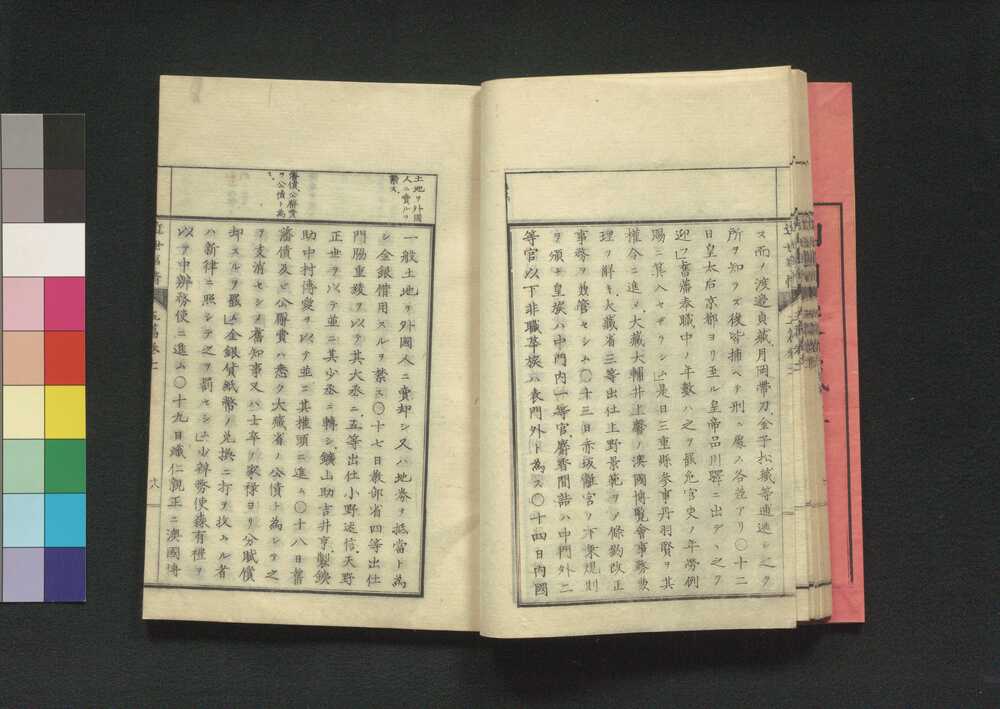 ス而ノ渡邊貞藏月岡帶刀金子松藏等逋逃シ之ク
所ヲ知ラズ後皆捕ヘテ刑ニ處ス各差アリ〇十二
日皇太后京都ヨリ至ル皇帝品川驛ニ出デヽ之ヲ
迎フ舊藩奉職中ノ年數ハ之ヲ縣官吏ノ年勞例
賜ニ算入セザラシム是日三重縣參事丹羽賢ヲ其
權令ニ進メ大藏大輔井上馨ノ澳國博覽會事務
理ヲ解キ大藏省三等出仕上野景範ヲノ條約改正
事務ヲ管セシム〇十三日赤坂離宮ノ下乘規則
ヲ頒ツ皇族ハ中門内一等官麝香間詣ハ中門外二
等官以下非職華族ハ表門外ト為ス〇十四日内國
土地ヲ外國
人ニ賣ルヲ
禁ス
舊藩債公廨費
ヲ公債ト為
一般土地ヲ外國人ニ賣却シ又ハ地券ヲ抵當ト為
シ金銀借用スルヲ禁ス〇十七日敎部省四等出仕
門脇重綾ヲ以テ其大丞ニ五等出仕小野述信天野
正世ヲ以テ並ニ其少丞ニ轉シ鑛山助吉井亨製鐵
助中村博愛ヲ以テ並ニ其權頭ニ進ム〇十八日舊
藩債及ビ公廨費ハ悉ク大藏省ノ公債ト為シテ之
ヲ支消セシメ舊知事又ハ士卒ノ家祿ヨリ分賦償
却スルヲ罷ム金銀貨紙幣ノ兌換ニ打ヲ收ムル者
ハ新律ニ照シテ之ヲ罰セシム少辨務使森有禮ヲ
以テ中辨務使ニ進ム〇十九日熾仁親王ニ澳國博